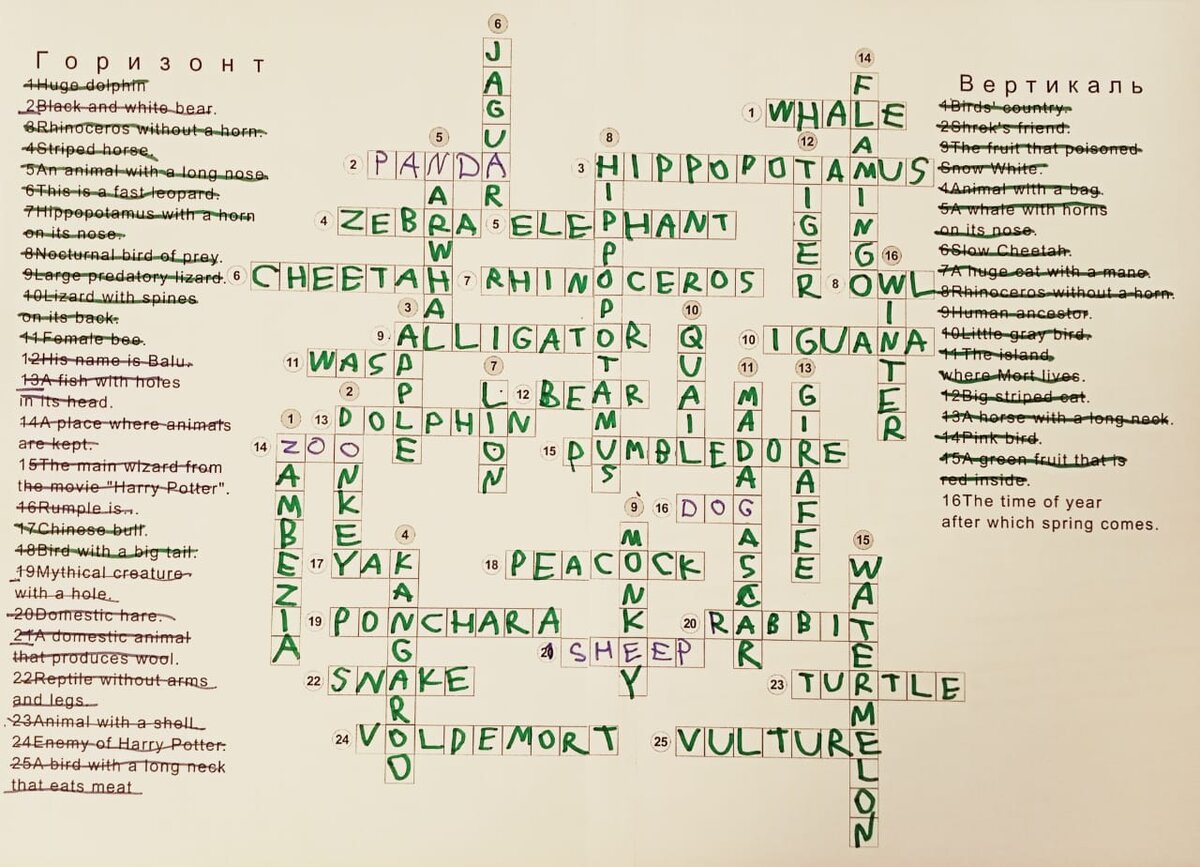 Горизонт
1Huge dolphin
2Black and white bear.
3Rhinoceros without a horn.
4Striped horse.
5An animal with a long nose.
6This is a fast leopard.
7Hippopotamus with a horn
on its nose.
8Nocturnal bird of prey.
9Large predatory lizard.
10Lizard with spines
on its back.
11Female bee.
12His name is Balu.
13A fish with holes
in its head.
14A place where animats
are kept.
15The main wizard from
the movie "Harry Potter".
16Rumple is..
17Chinese bull.
18Bird with a big tail.
19Mythical creature
with a hole.
20Domestic hare.
21A domestic animal
that produces wool.
22Reptile without arms
and legs.
23Animal with a shell
24Enemy of Harry Potter.
25A bird with a long neck
that eats meat
6
JAGUAR
14
FLAMINGO
1 WHALE
5
NARWHAL
8
HIPPOPOTAMUS
12
TIGER
2 PANDA
3 HIPPOPOTAMUS
4 ZEBRA
5 ELEPHANT
16
WINTER
6 CHEETAH
7 RHINOCEROS
8 OWL
3
APPLE
10
QUAIL
9 ALLIGATOR
10 IGUANA
11 WASP
7
LION
11
MADAGASCAR
13
GIRAFFE
2
DONKEY
12 BEAR
1
ZAMBEZIA
13 DOLPHIN
14 ZOO
15 DUMBLEDORE
9
MONKEY
16 DOG
4
KANGAROO
15
WATERMELON
17 YAK
18 PEACOCK
19 PONCHARA
20 RABBIT
21 SHEEP
22 SNAKE
23 TURTLE
24 VOLDEMORT
25 VULTURE
Вертикаль
1Birds' country.
2Shrek's friend.
3The fruit that poisoned
Snow White.
4Animal with a bag.
5A whale with horns
on its nose.
6Slow Cheetah.
7A huge cat with a mane.
8Rhinoceros without a horn.
9Human ancestor.
10Little gray bird.
11The island,
where Mort lives.
12Big striped cat.
13A horse with a long neck.
14Pink bird.
15A green fruit that is
red inside.
16The time of year
after which spring comes.